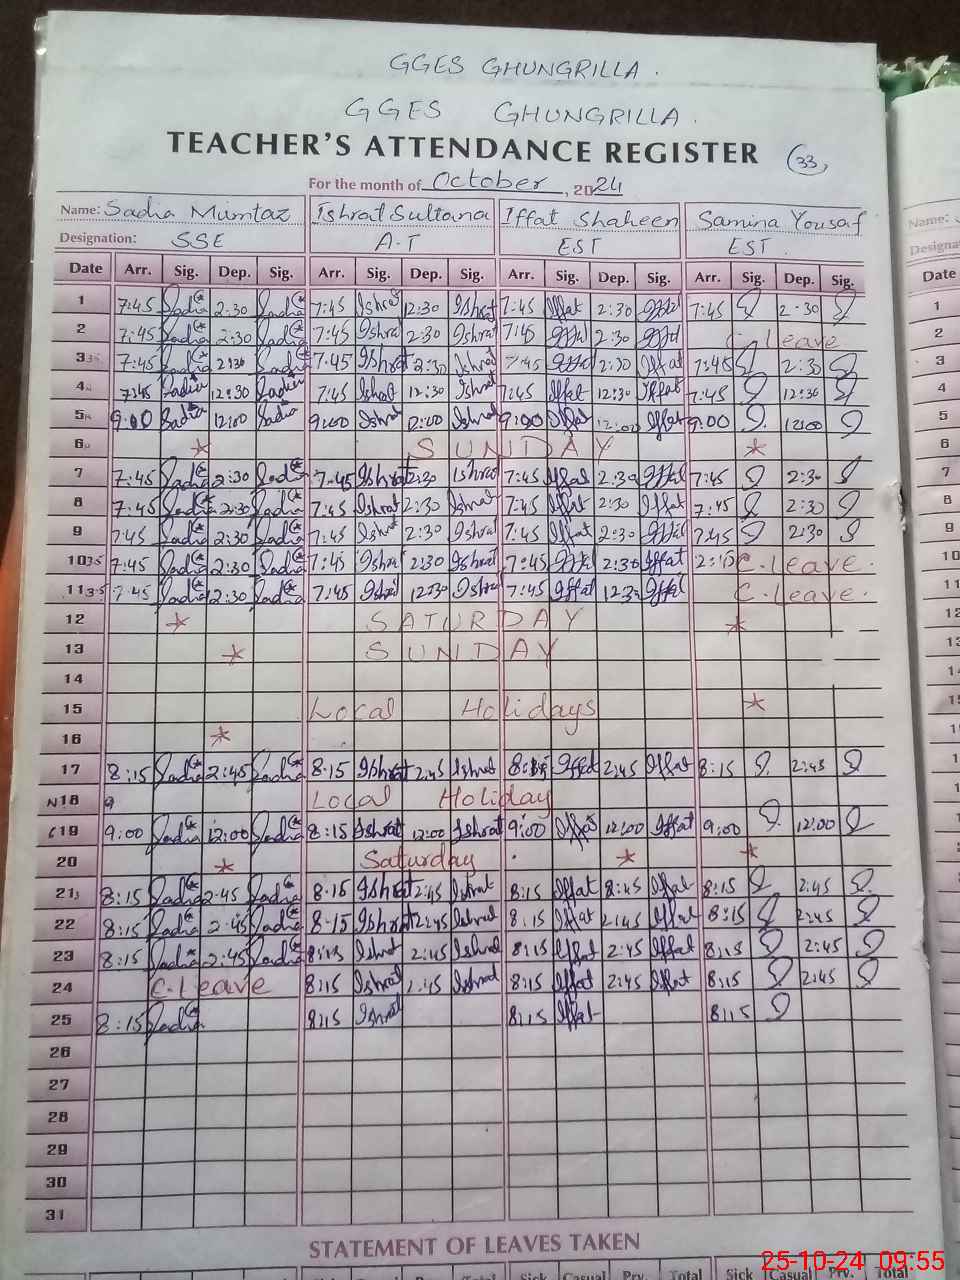 GGES GHUNGRILLA.
GGES GHUNGRILLA.
TEACHER'S ATTENDANCE REGISTER (33)
For the month of October, 2024
Name: Sadia Mumtaz Ishrat Sultana Iffat Shaheen Samina Yousaf Name:
Designation: SSE A.T EST EST.
Date Arr. Sig. Dep. Sig. Arr. Sig. Dep. Sig. Arr. Sig. Dep. Sig. Arr. Sig. Dep. Sig. Date
1 7:45 Sadia 2:30 Sadia 7:45 Ishrat 2:30 Ishrat 7:45 Iffat 2:30 Iffat 7:45 2:30 1
2 7:45 Sadia 2:30 Sadia 7:45 Ishrat 2:30 Ishrat 7:45 Iffat 2:30 Iffat C. Leave 2
3 7:45 Sadia 2:30 Sadia 7:45 Ishrat 2:30 Ishrat 7:45 Iffat 2:30 Iffat 7:45 2:30 3
4 7:45 Sadia 12:30 Sadia 7:45 Ishrat 12:30 Ishrat 7:45 Iffat 12:30 Iffat 7:45 12:30 4
5 9:00 Sadia 12:00 Sadia 9:00 Ishrat 12:00 Ishrat 9:00 Iffat 12:00 Iffat 9:00 12:00 5
6 * SUNDAY * 6
7 7:45 Sadia 2:30 Sadia 7:45 Ishrat 2:30 Ishrat 7:45 Iffat 2:30 Iffat 7:45 2:30 7
8 7:45 Sadia 2:30 Sadia 7:45 Ishrat 2:30 Ishrat 7:45 Iffat 2:30 Iffat 7:45 2:30 8
9 7:45 Sadia 2:30 Sadia 7:45 Ishrat 2:30 Ishrat 7:45 Iffat 2:30 Iffat 7:45 2:30 9
10 7:45 Sadia 2:30 Sadia 7:45 Ishrat 2:30 Ishrat 7:45 Iffat 2:30 Iffat C. Leave.
11 7:45 Sadia 12:30 Sadia 7:45 Ishrat 12:30 Ishrat 7:45 Iffat 12:30 Iffat C. Leave.
12 * SATURDAY *
13 * SUNDAY
14
15 Local Holidays *
16 *
17 8:15 Sadia 2:45 Sadia 8:15 Ishrat 2:45 Ishrat 8:15 Iffat 2:45 Iffat 8:15 2:45
18 Local Holiday
19 9:00 Sadia 12:00 Sadia 8:15 Ishrat 12:00 Ishrat 9:00 Iffat 12:00 Iffat 9:00 12:00
20 * Saturday * *
21 8:15 Sadia 2:45 Sadia 8:15 Ishrat 2:45 Ishrat 8:15 Iffat 8:45 Iffat 8:15 2:45
22 8:15 Sadia 2:45 Sadia 8:15 Ishrat 2:45 Ishrat 8:15 Iffat 2:45 Iffat 8:15 2:45
23 8:15 Sadia 2:45 Sadia 8:15 Ishrat 2:45 Ishrat 8:15 Iffat 2:45 Iffat 8:15 2:45
24 C. Leave 8:15 Ishrat 2:45 Ishrat 8:15 Iffat 2:45 Iffat 8:15 2:45
25 8:15 Sadia 8:15 Ishrat 8:15 Iffat 8:15
26
27
28
29
30
31
STATEMENT OF LEAVES TAKEN
Sick Casual Prv. Total Sick Casual Prv. Total
25-10-24 09:55